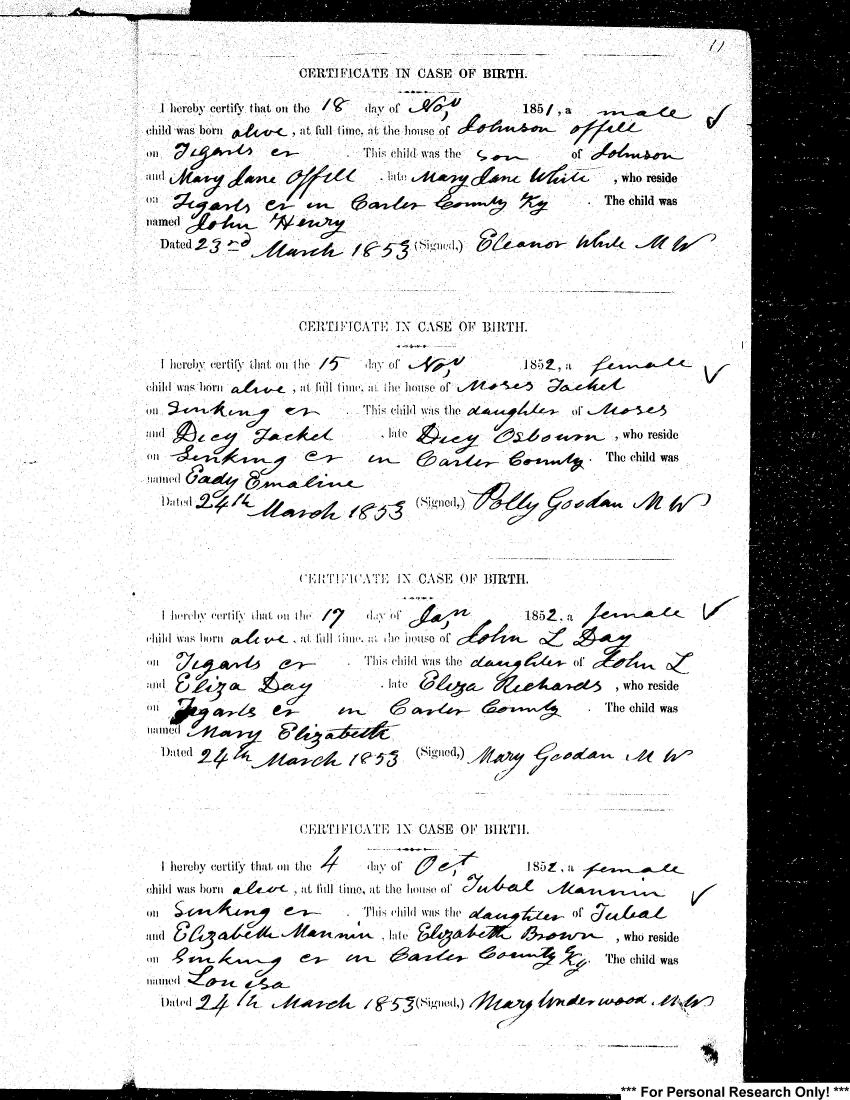 11
CERTIFICATE IN CASE OF BIRTH.
I hereby certify that on the 18 day of Nov, 1851, a male
child was born alive, at full time, at the house of Johnson Offill
on Tigarts cr . This child was the son of Johnson
and Mary Jane Offill , late Mary Jane White , who reside
on Tigarts cr in Carter County Ky . The child was
named John Henry
Dated 23rd March 1853 (Signed,) Eleanor White M W
CERTIFICATE IN CASE OF BIRTH.
I hereby certify that on the 15 day of Nov, 1852, a female
child was born alive, at full time, at the house of Moses Jackel
on Sinking cr . This child was the daughter of Moses
and Dicy Jackel , late Dicy Osbourn , who reside
on Sinking cr in Carter County. The child was
named Eady Emaline
Dated 24th March 1853 (Signed,) Polly Goodan M W
CERTIFICATE IN CASE OF BIRTH.
I hereby certify that on the 17 day of Jan, 1852, a female
child was born alive, at full time, at the house of John L Day
on Tigarts cr . This child was the daughter of John L
and Eliza Day , late Eliza Richards , who reside
on Tygarts cr in Carter County . The child was
named Mary Elizabeth
Dated 24th March 1853 (Signed,) Mary Goodan M W
CERTIFICATE IN CASE OF BIRTH.
I hereby certify that on the 4 day of Oct, 1852, a female
child was born alive, at full time, at the house of Tubal Mannin
on Sinking cr . This child was the daughter of Tubal
and Elizabeth Mannin , late Elizabeth Brown , who reside
on Sinking cr in Carter County Ky. The child was
named Louisa
Dated 24th March 1853 (Signed,) Mary Underwood M W
*** For Personal Research Only! ***